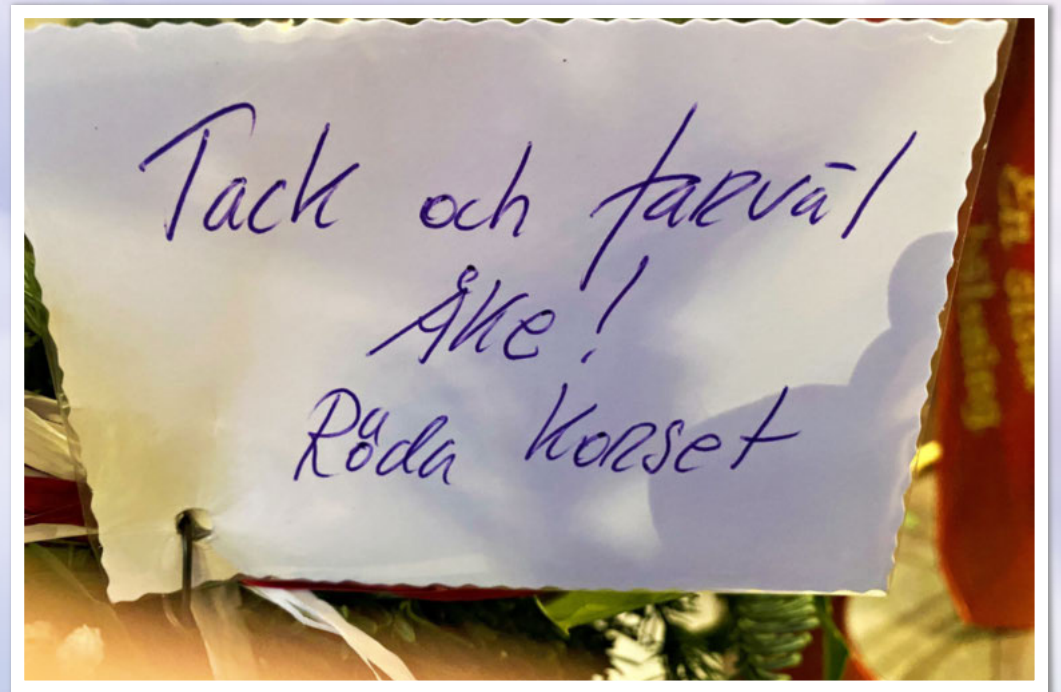 Tack och farväl
Åke!
Röda Korset